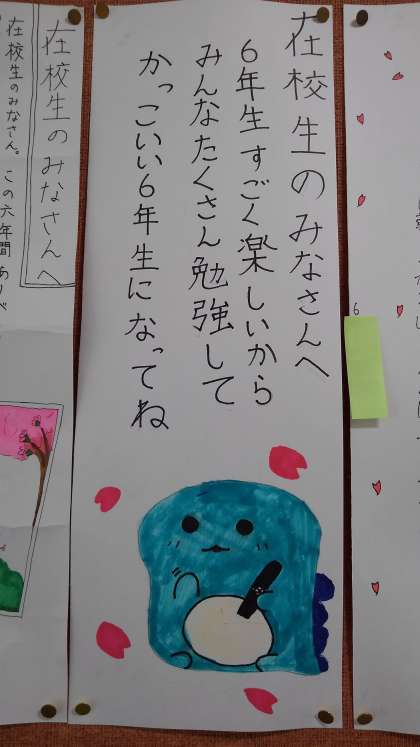 在校生のみなさんへ
6年生すごく楽しいから
みんなたくさん勉強して
かっこいい6年生になってね
在校生のみなさんへ
在校生のみなさん。この六年間あり
6